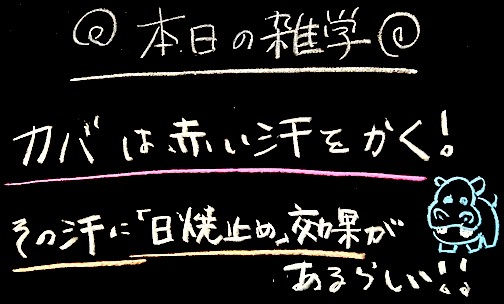 本日の雑学
カバは赤い汗をかく!
その汗に「日焼止め」効果が
あるらしい!!